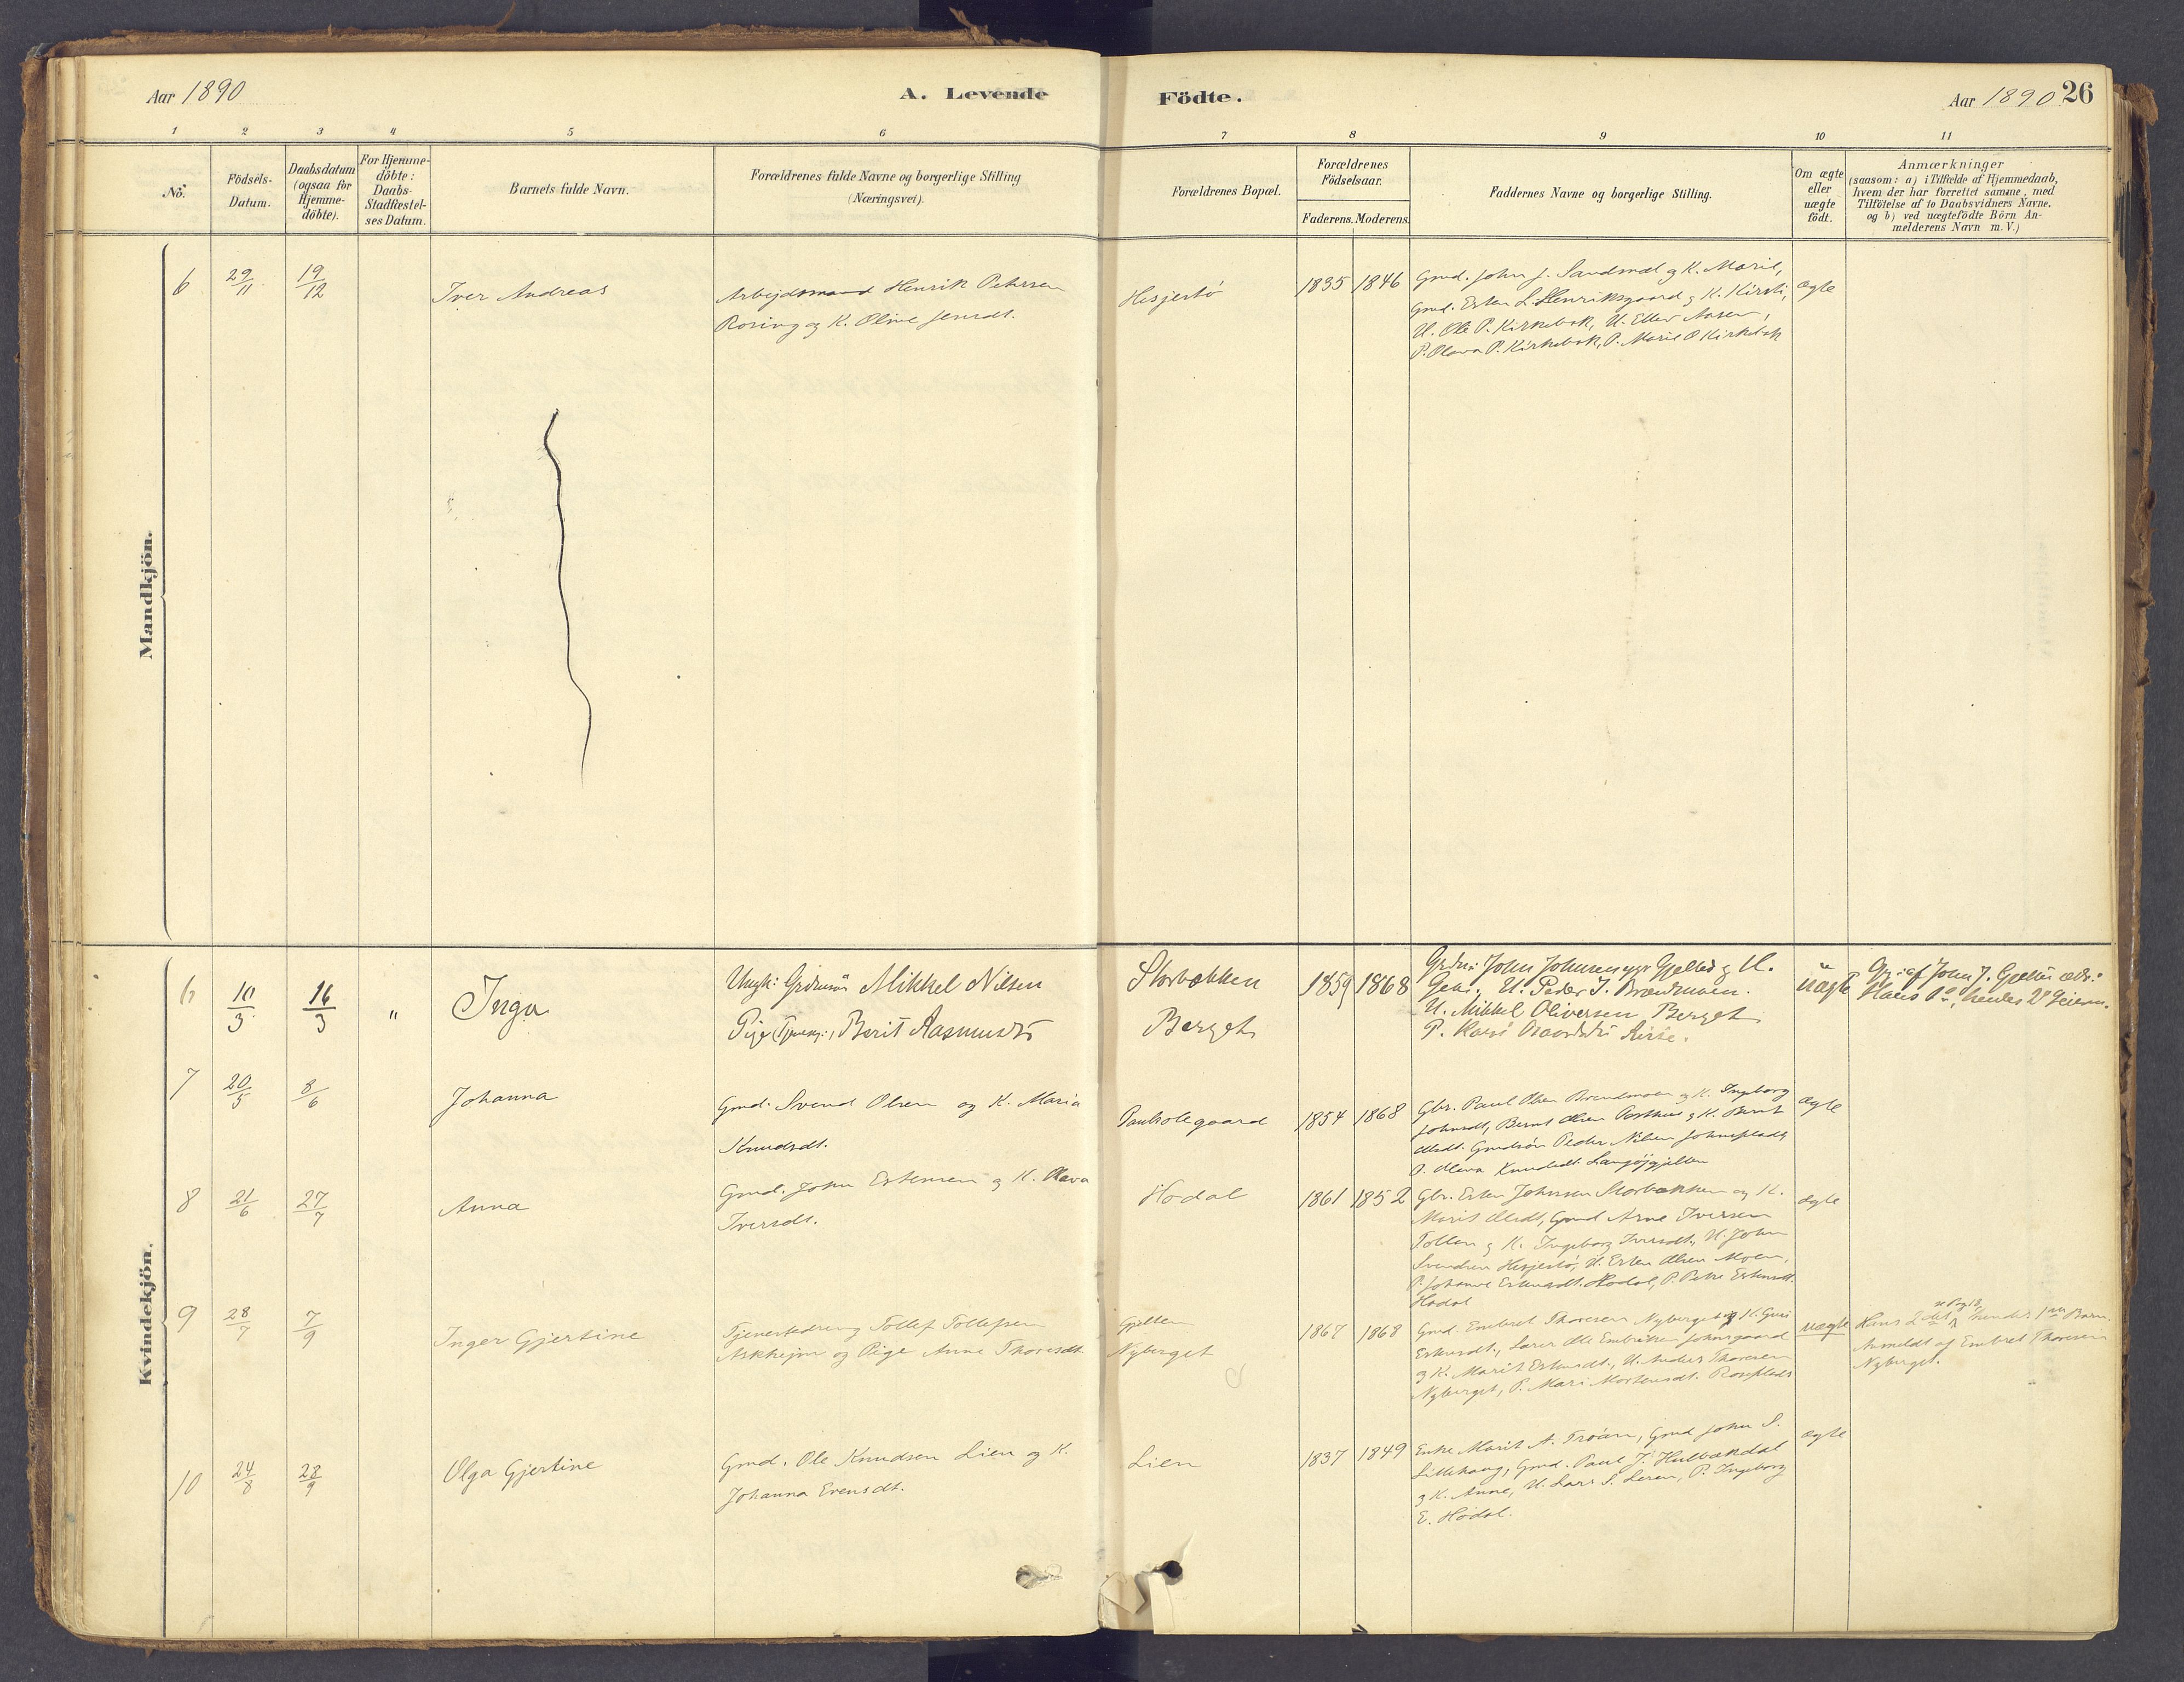 Aar 1890
A. Levende
Födte.
Aar 1890 26
1 2 3 4 5 6 7 8 9 10 11
No.
Födsels-
Datum.
Daabsdatum
(ogsaa for
Hjemme-
döbte).
For Hjemme-
döbte:
Daabs-
Stadfæstel-
ses Datum.
Barnets fulde Navn.
Forældrenes fulde Navne og borgerlige Stilling
(Næringsvei).
Forældrenes Bopæl.
Forældrenes
Födselsaar.
Faderens. Moderens.
Faddernes Navne og borgerlige Stilling.
Om ægte
eller
uægte
födt.
Anmærkninger
(saasom: a) i Tilfælde af Hjemmedaab,
hvem der har forrettet samme, med
Tilföielse af to Daabsvidners Navne.
og b) ved uægtefödte Börn An-
melderens Navn m.V.)
Mandkjön.
6 29/11 19/12
Iver Andreas
Arbejdsmand Henrik Petersen
Rosing og K. Oline Jensdt.
Hesjestö
1835 1846
Gmd. John J. Sandmæl og K. Marit,
Gmd. Esten L. Henriksgaard og K. Kirsti,
U. Ole P. Kirkebak, U. Ellev Aasen,
P. Olava P. Kirkebak, P. Marit P. Kirkebak
ægte
Kvindekjön.
6 10/3 16/3 "
Inga
Ungk: Grdmsön Mikkel Nilsen
Pige Berit Rasmusdt
Storbækken
Berget
1859 1868
Grdm: John Johnsen Gjelten og H.
U. Peder J. Brændmoen.
U. Mikkel Oliversen Berget
P. Kari
uægte
af John J. Gjelten
Hans 1ste, hendes 2det
7 20/5 8/6
Johanna
Gmd. Svend Olsen og K. Maria
Knudsdt.
Paulsolegaard
1854 1868
Gbr. Paul Olsen Brendmoen og K. Ingeborg
Johnsdt, Bernt Olsen og K. Berit
Olsdt. Gmdsön Peder Nilsen Johnsplads
P. Olava Knudsdt. Langsjögjelten
ægte
8 21/6 27/7
Anna
Gmd. John Estensen og K. Olava
Iversdt.
Hodal
1861 1852
Gbr. Esten Johnsen Storbækken og K.
Marit Olsdt, Gmd Arne Iversen
Tollan og K. Ingeborg Iversdt., U. John
Svendsen Hesjestö, U. Esten Olsen Moen,
P. Johanne Estensdt. Hodal, P. Estensdt.
Hodal
ægte
9 28/7 7/9
Inger Gjertine
Tjenestedreng Tollef Tollefsen
Askhejm og Pige Anne Thoresdt
Gjelten
Nyberget
1867 1868
Gmd. Embret Thoresen Nyberget og K. Guri
Estensdt., Lærer Ole Embretsen Johnsgaard
og K. Marit Estensdt., U. Anders Thoresen
Nyberget, P. Mari Mortensdt. Rosplads
uægte
se Pag 18,
Hans 2det hendes 1ste Barn.
Anmeldt af Embret Thoresen
Nyberget.
10 24/8 28/9
Olga Gjertine
Gmd. Ole Knudsen Lien og K.
Johanna Evensdt.
Lien
1837 1849
Enke Marit A. Tröan, Gmd John S.
Lillehaug, Gmd. Paul J. Hulbækdal
og K. Anne, U. Lars S. Leren, P. Ingeborg
E. Hodal.
ægte